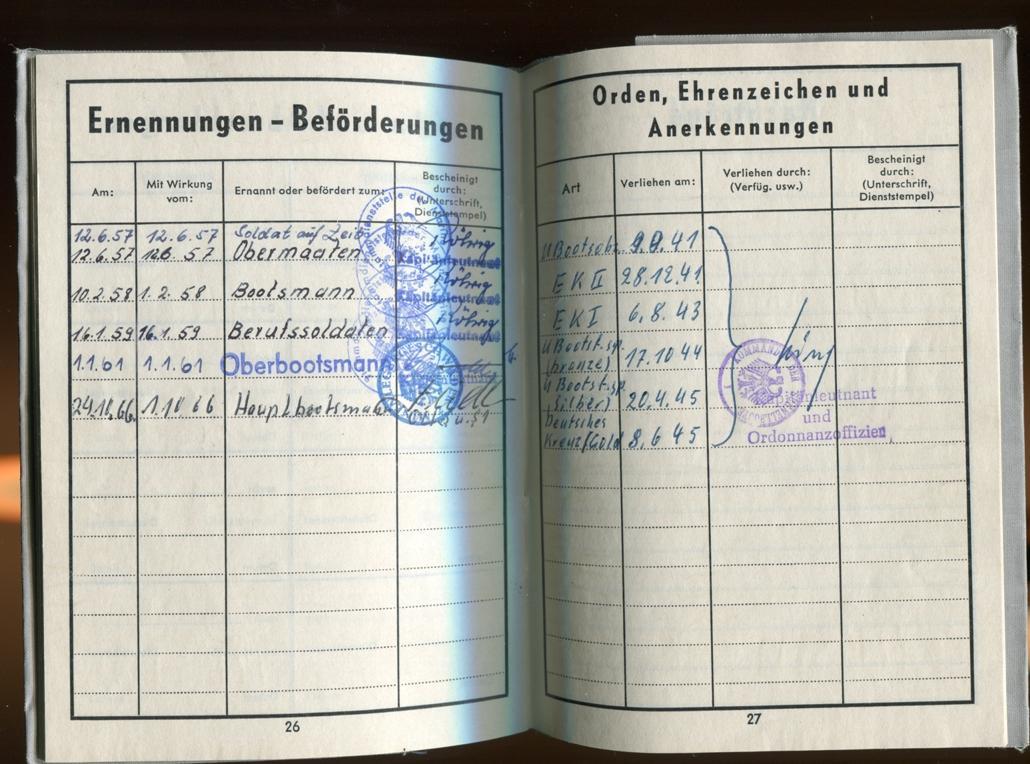 Ernennungen – Beförderungen
Am: Mit Wirkung vom: Ernannt oder befördert zum: Bescheinigt durch: (Unterschrift, Dienststempel)
12.6.57 12.6.57 Soldat auf Zeit Röhrig
12.6.57 12.6.57 Obermaaten Kapitänleutnant
10.2.58 1.2.58 Bootsmann Röhrig Kapitänleutnant
16.1.59 16.1.59 Berufssoldaten Röhrig Kapitänleutnant
1.1.61 1.1.61 Oberbootsmann
24.10.66. 1.10.66 Hauptbootsmann
26
Orden, Ehrenzeichen und
Anerkennungen
Art Verliehen am: Verliehen durch: (Verfüg. usw.) Bescheinigt durch: (Unterschrift, Dienststempel)
U Bootsabz. 41
EK II 28.12.41
EK I 6.8.43
U Bootst.sp.
(bronze) 17.10.44
U Bootst.sp.
(Silber) 20.4.45
Deutsches
Kreuz/Gold 8.6.45
KOMMANDO DER
Kapitänleutnant
und
Ordonnanzoffizier
27